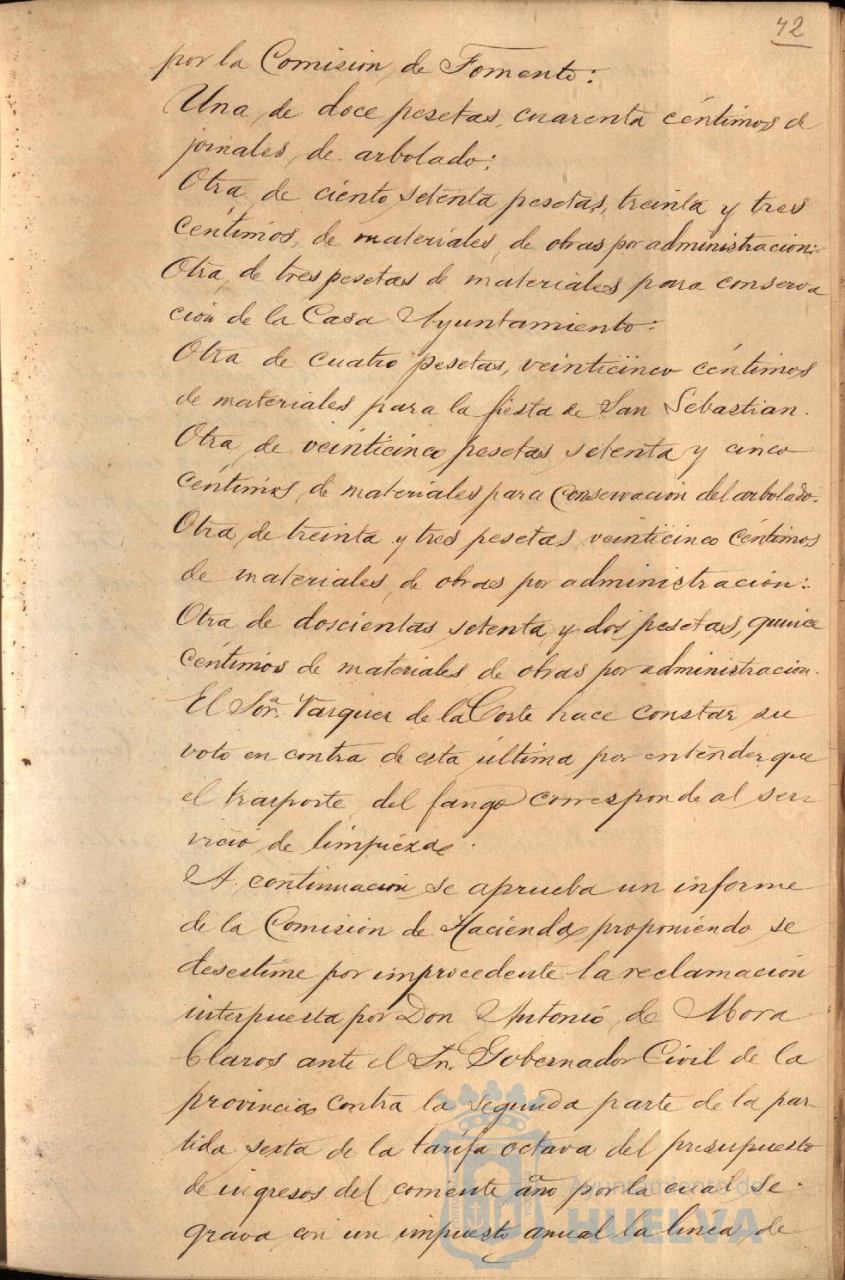 42
por la Comisión, de Fomento:
Una, de doce pesetas, cuarenta céntimos de
jornales, de arbolado:
Otra, de ciento setenta pesetas, treinta y tres
céntimos, de materiales, de obras por administracion:
Otra, de tres pesetas de materiales para conserva
ción de la Casa Ayuntamiento:
Otra de cuatro pesetas, veinticinco céntimos
de materiales para la fiesta de San Sebastian.
Otra de veinticinco pesetas setenta y cinco
céntimos, de materiales para conservacion del arbolado.
Otra, de treinta y tres pesetas veinticinco céntimos
de materiales, de obras por administración:
Otra de doscientas setenta, y dos pesetas, quince
céntimos de materiales de obras por administracion.
El Sor. Vazquez de la Corte hace constar su
voto en contra de esta última por entender que
el trasporte del fango corresponde al ser
vicio, de limpieza.
A continuacion, se aprueba un informe
de la Comisión de Hacienda proponiendo se
desestime por improcedente la reclamación
interpuesta por Don Antonio, de Mora
Claros ante el Sr. Gobernador Civil de la
provincia contra la segunda parte de la par
tida sexta de la tarifa octava del presupuesto
de ingresos del corriente año por la cual se
grava con un impuesto anual la linea, de
Ayuntamiento de
HUELVA